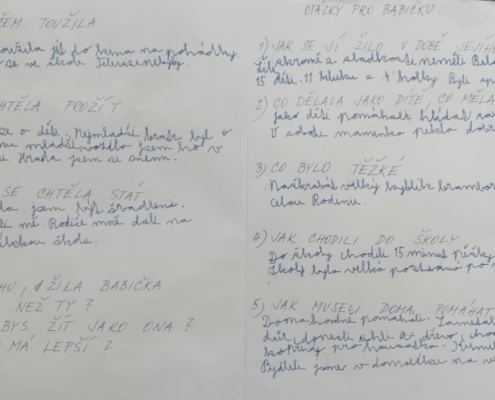 ČEM TOUŽILA
toužila jít do kina na pohádky
se ve škole. Televize nebyla.
CHTĚLA PROŽÍT
se o děti. Nejmladší bratr byl o
mladší, vozila jsem ho v
jsem se s ním.
SE CHTĚLA STÁT
jsem být švadlena.
mě. Rodiče mně dali na
školu.
HU, ŽILA BABIČKA
NEŽ TY?
BYS ŽÍT JAKO ONA?
MÁ LEPŠÍ?
OTÁZKY PRO BABIČKU:
1) JAK SE JÍ ŽILO V DOBĚ JEJÍHO
skromě a sladkosti neměli
15 dětí. 11 kluků a 4 holky. Byli
2) CO DĚLALA JAKO DÍTĚ, CO MĚLA
Jako děti pomáhali hlídat
V sobotu maminka pekla
3) CO BYLO TĚŽKÉ
Naškrabat velký kyblík brambor
celou Rodinu.
4) JAK CHODILI DO ŠKOLY
Do školy chodili 15 minut pěšky.
Školy byla velká postavená po
5) JAK MUSELI DOMA POMÁHAT
Doma hodně pomáhali. Zametat
dvůr, donést uhlí a dřevo,
kopřivy pro housata.
Bydleli jsme v domečku na